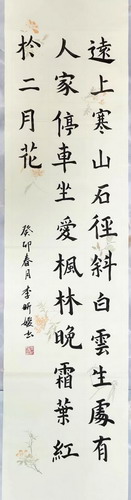 遠上寒山石徑斜白雲生處有
人家停車坐愛楓林晚霜葉紅
於二月花
癸卯春月李昕